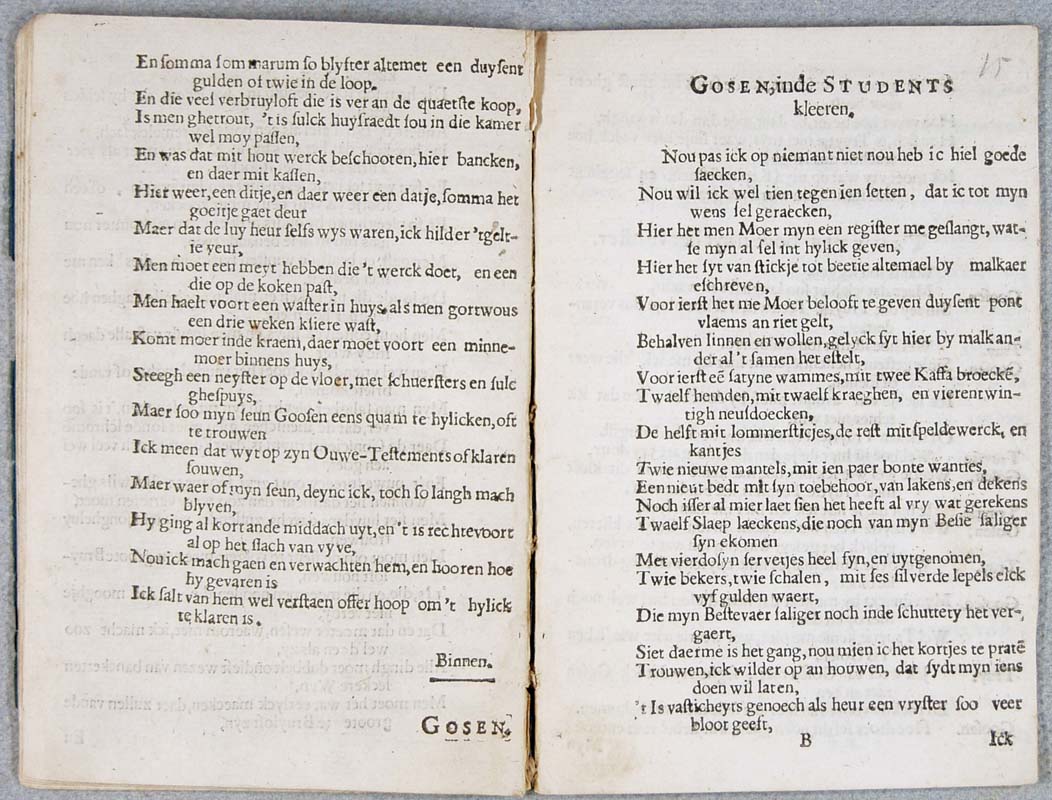 En somma sommarum so blyfter altemet een duysent
gulden of twie in de loop.
En die veel verbruyloft die is ver an de quaetste koop,
Is men ghetrout, 't is sulck huysraedt sou in die kamer
wel moy passen,
En was dat mit hout werck beschooten, hier bancken,
en daer mit kassen,
Hier weer, een ditje, en daer weer een datje, somma het
goeitje gaet deur
Maer dat de luy heur selfs wys waren, ick hilder 'tgelt-
ie veur,
Men moet een meyt hebben die 't werck doet, en een
die op de koken past,
Men haelt voort een waster in huys, als men gortwous
een drie weken kliere wast,
Komt moer inde kraem, daer moet voort een minne-
moer binnens huys,
Steegh een neyster op de vloer, met schuersters en sulc
ghespuys,
Maer soo myn seun Goosen eens quam te hylicken, oft
te trouwen
Ick meen dat wyt op zyn Ouwe-Testements of klaren
souwen,
Maer waer of myn seun, deync ick, toch so langh mach
blyven,
Hy ging al kort ande middach uyt, en 't is rechtevoort
al op het slach van vyve,
Nou ick mach gaen en verwachten hem, en hooren hoe
hy gevaren is
Ick salt van hem wel verstaen offer hoop om 't hylick
te klaren is.
Binnen.
GOSEN.
15
GOSEN, inde STUDENTS
kleeren.
Nou pas ick op niemant niet nou heb ic hiel goede
saecken,
Nou wil ick wel tien tegen ien setten, dat ic tot myn
wens sel geraecken,
Hier het men Moer myn een register me geslangt, wat-
se myn al sel int hylick geven,
Hier het syt van stickje tot beetie altemael by malkaer
eschreven,
Voor ierst het me Moer belooft te geven duysent pont
vlaems an riet gelt,
Behalven linnen en wollen, gelyck syt hier by malkan-
der al 't samen het estelt,
Voor ierst eē satyne wammes, mit twee Kaffa broeckē,
Twaelf hemden, mit twaelf kraeghen, en vierentwin-
tigh neusdoecken,
De helft mit lommersticjes, de rest mit speldewerck, en
kantjes
Twie nieuwe mantels, mit ien paer bonte wanties,
Een nieut bedt mit syn toebehoor, van lakens, en dekens
Noch isser al mier laet sien het heeft al vry wat gerekens
Twaelf Slaep laeckens, die noch van myn Besie saliger
syn ekomen
Met vierdosyn servetjes heel fyn, en uytgenomen,
Twie bekers, twie schalen, mit ses silverde lepels elck
vyf gulden waert,
Die myn Bestevaer saliger noch inde schuttety het ver-
gaert,
Siet daerme is het gang, nou mien ic het kortjes te pratē
Trouwen, ick wilder op an houwen, dat sydt myn iens
doen wil laten,
't Is vasticheyts genoech als heur een vryster soo veer
bloot geeft,
B
Ick